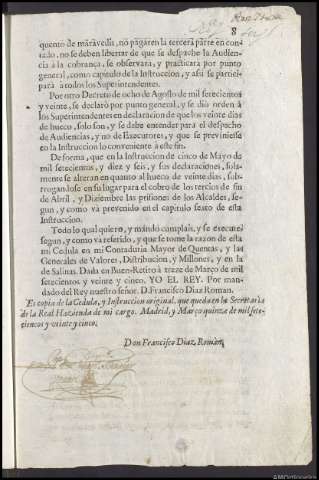 8
quento de maravedis, no pagaren la tercera parte en con-
tado, no se deben libertar de que se despache la Audien-
cia a la cobrança, se observara, y practicarà por punto
general, como capitulo de la Instruccion, y assi se partici-
parà a todos los Superintendentes.
Por otro Decreto de ocho de Agosto de mil setecientos
y veinte, se declarò por punto general, y se diò orden à
los Superintendentes en declaracion de que los veinte dias
de hueco, solo son, y se debe entender para el despacho
de Audiencias, y no de Executores, y que se previniesse
en la Instruccion lo conveniente à este fin.
De forma, que en la Instruccion de cinco de Mayo de
mil setecientos, y diez y seis, y sus declaraciones, sola-
mente se alteran en quanto al hueco de veinte dias, sub-
rogandose en su lugar para el cobro de los tercios de fin
de Abril, y Diziembre las prisiones de los Alcaldes, se-
gun, y como và prevenido en el capitulo sexto de esta
Instruccion.
Todo lo qual quiero, y mando cumplais, y se execute
segun, y como và referido, y que se tome la razon de esta
mi Cedula en mi Contaduria Mayor de Quentas, y las
Generales de Valores, Distribucion, y Millones, y en la
de Salinas. Dada en Buen-Retiro à treze de Março de mil
setecientos y veinte y cinco. YO EL REY. Por man-
dado del Rey nuestro señor. D. Francisco Diaz Roman.
Es copia de la Cedula, y Instruccion original, que queda en la Secretaria
de la Real Hazienda de mi cargo. Madrid, y Março quinze de mil sete-
cientos y veinte y cinco.
Don Francisco Diaz Roman,